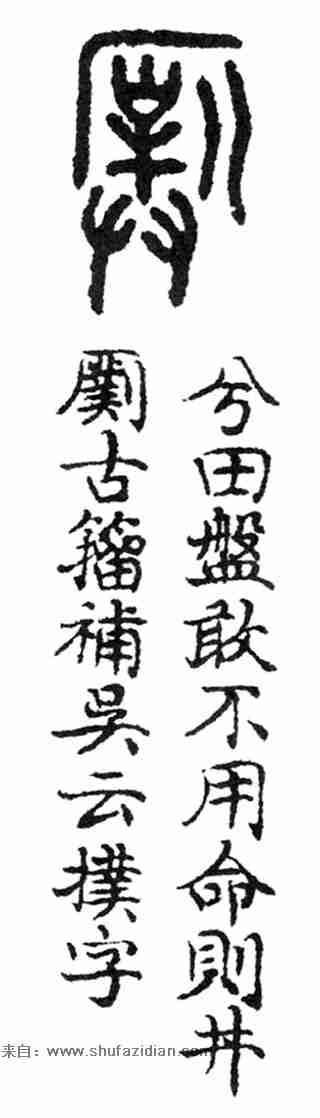 兮田盤敢不用命則井
古籀補吳云撲字
来自：www.shufazidian.com